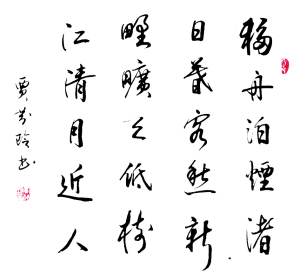 移舟泊煙渚
日暮客愁新
野曠天低樹
江清月近人
賈 玲书